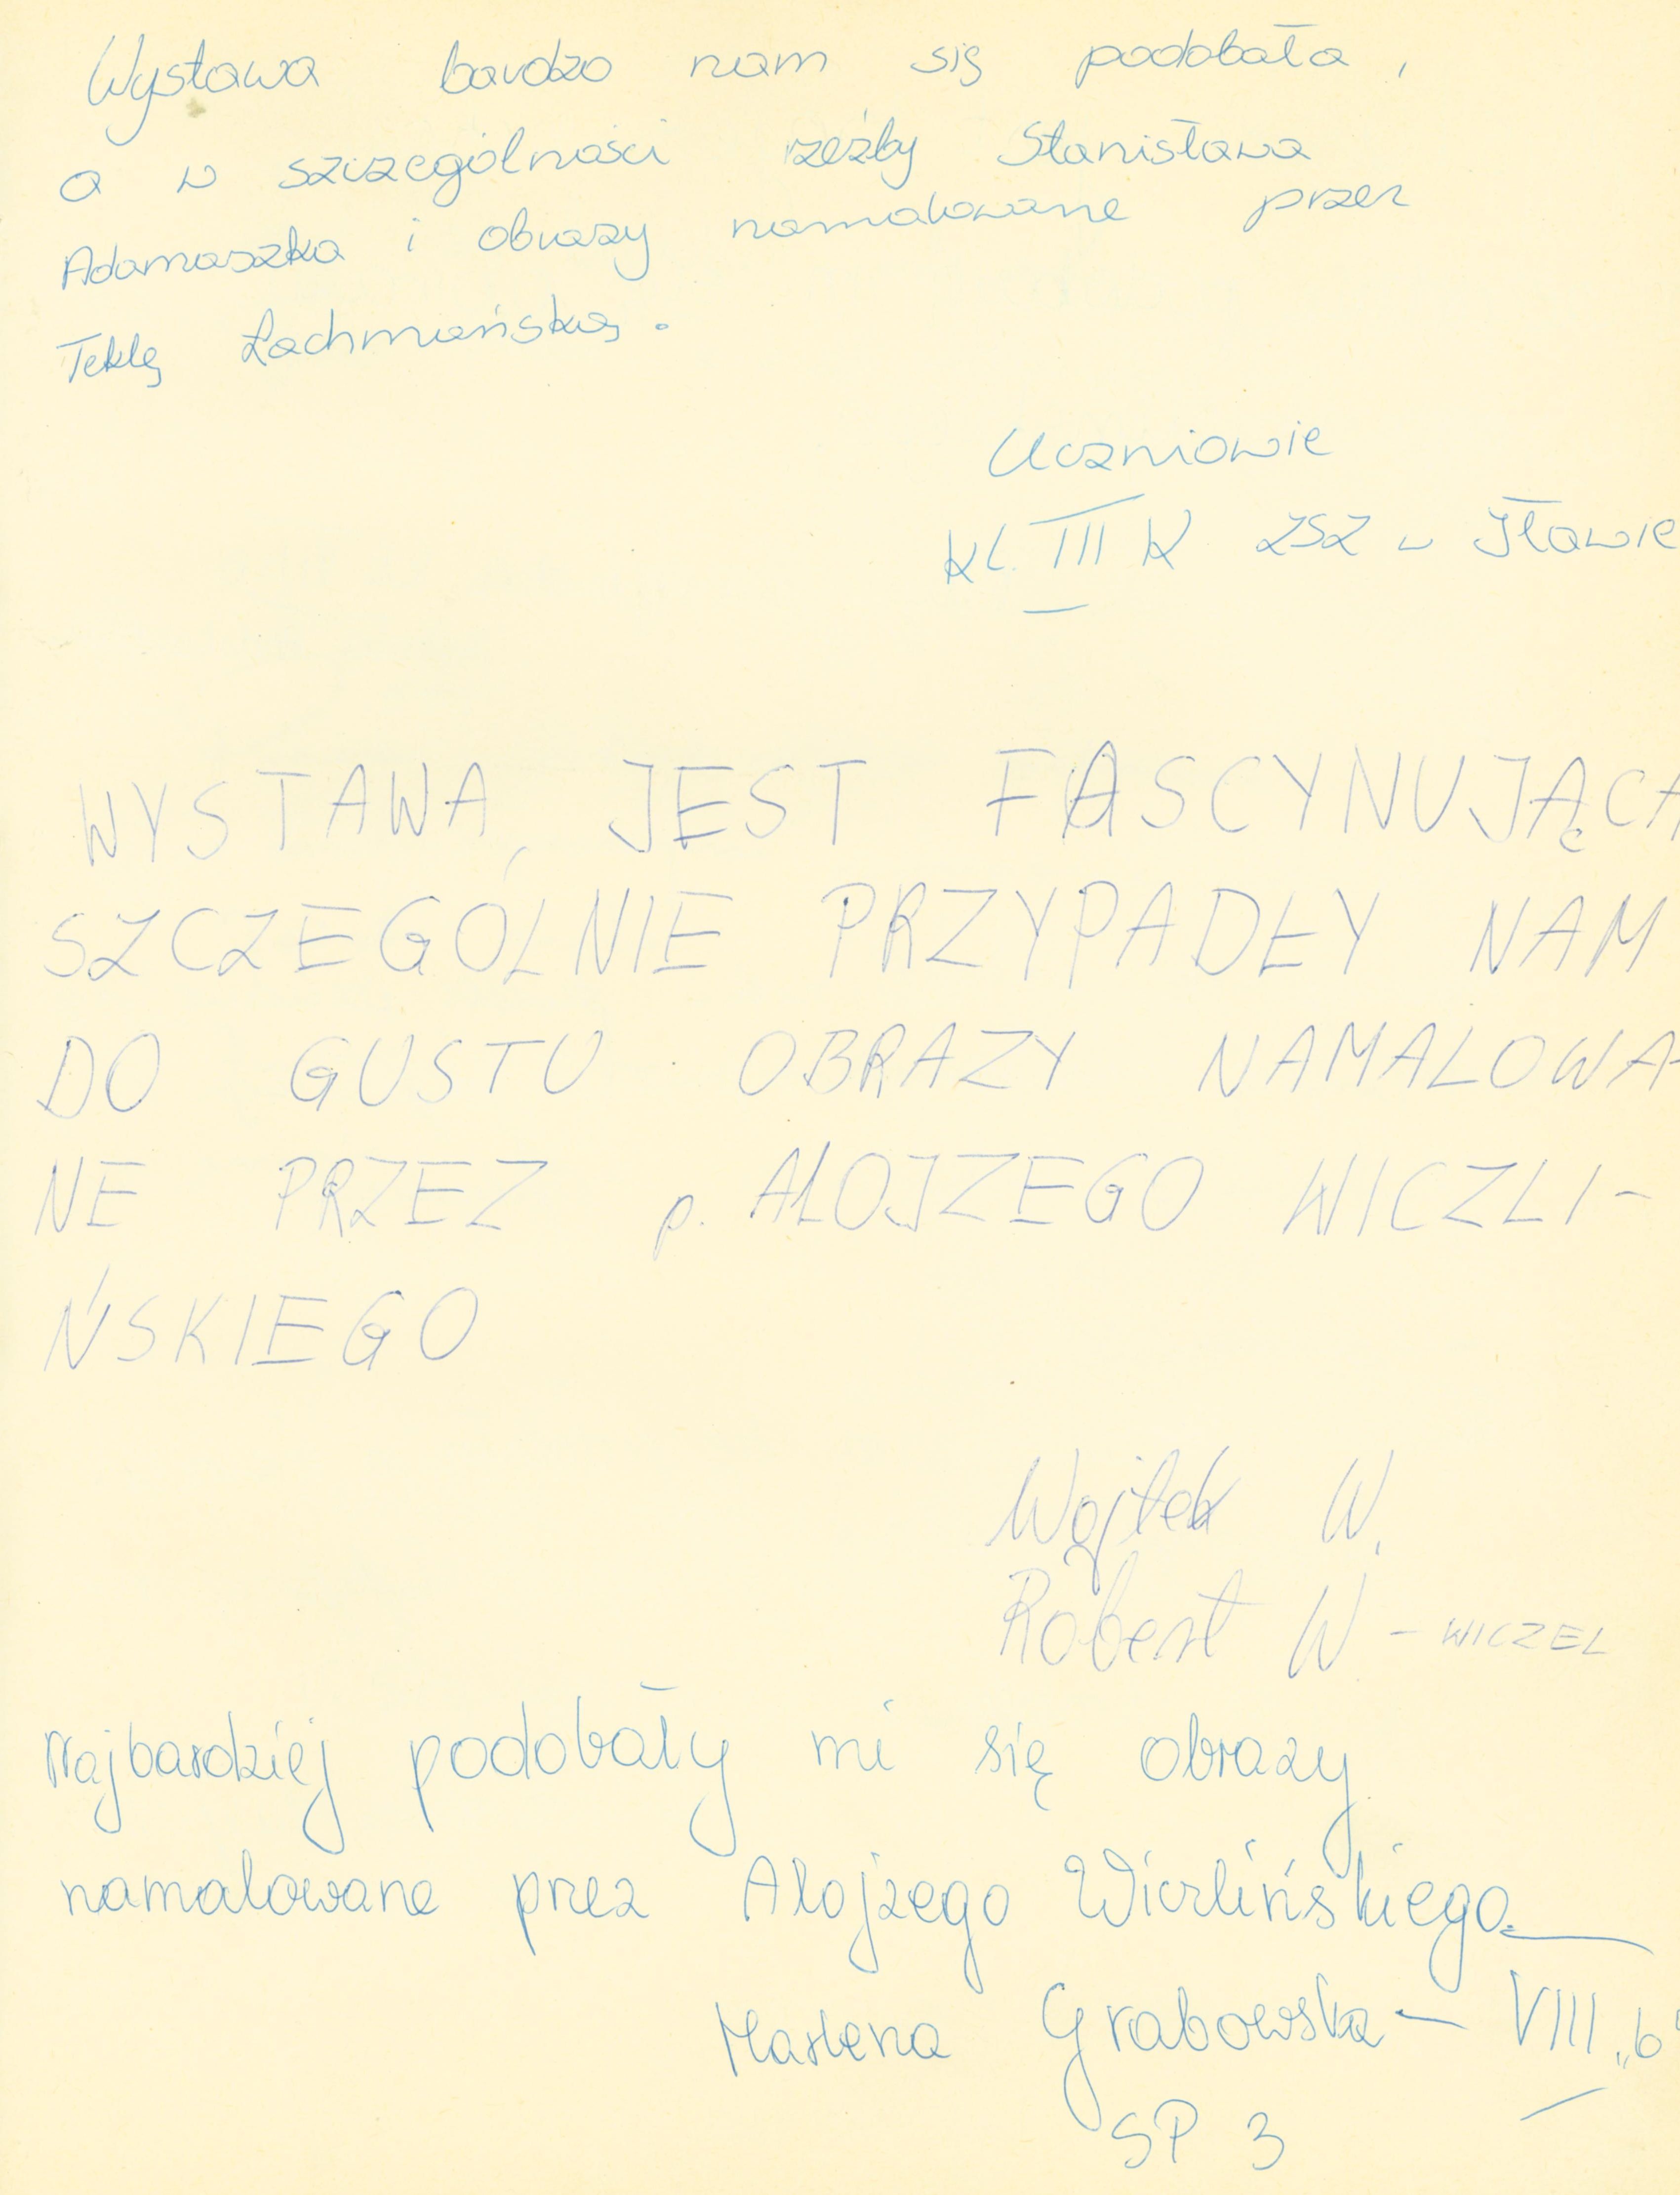 Wystawa bardzo nam się podobała,
a w szczególności rzeźby Stanisława
Adamaszka i obrazy namalowane przez
Teklę Łachmańską.
Uczniowie
kl. III K ZSZ w Iławie
WYSTAWA JEST FASCYNUJĄCA
SZCZEGÓLNIE PRZYPADŁY NAM
DO GUSTU OBRAZY NAMALOWA-
NE PRZEZ p. ALOJZEGO WICZLI-
ŃSKIEGO
Wojtek W.
Robert W - WICZEL
Najbardziej podobały mi się obrazy
namalowane przez Alojzego Wiczlińskiego.
Marlena Grabowska - VIII „b"
SP 3